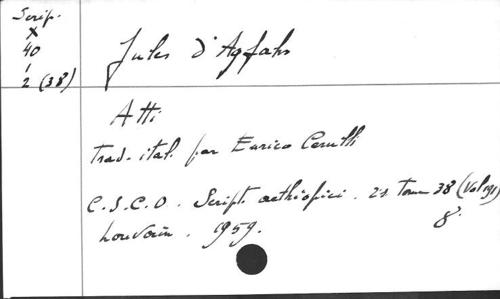 Scrip.
X
40
1
2 (38)
Jules d'Aqfahs
Atti
Trad. ital. par Enrico Cerulli
C.S.C.O. Script. aethiopici. 2s Tome 38 (Vol 191)
Louvain. 1959. 8°.